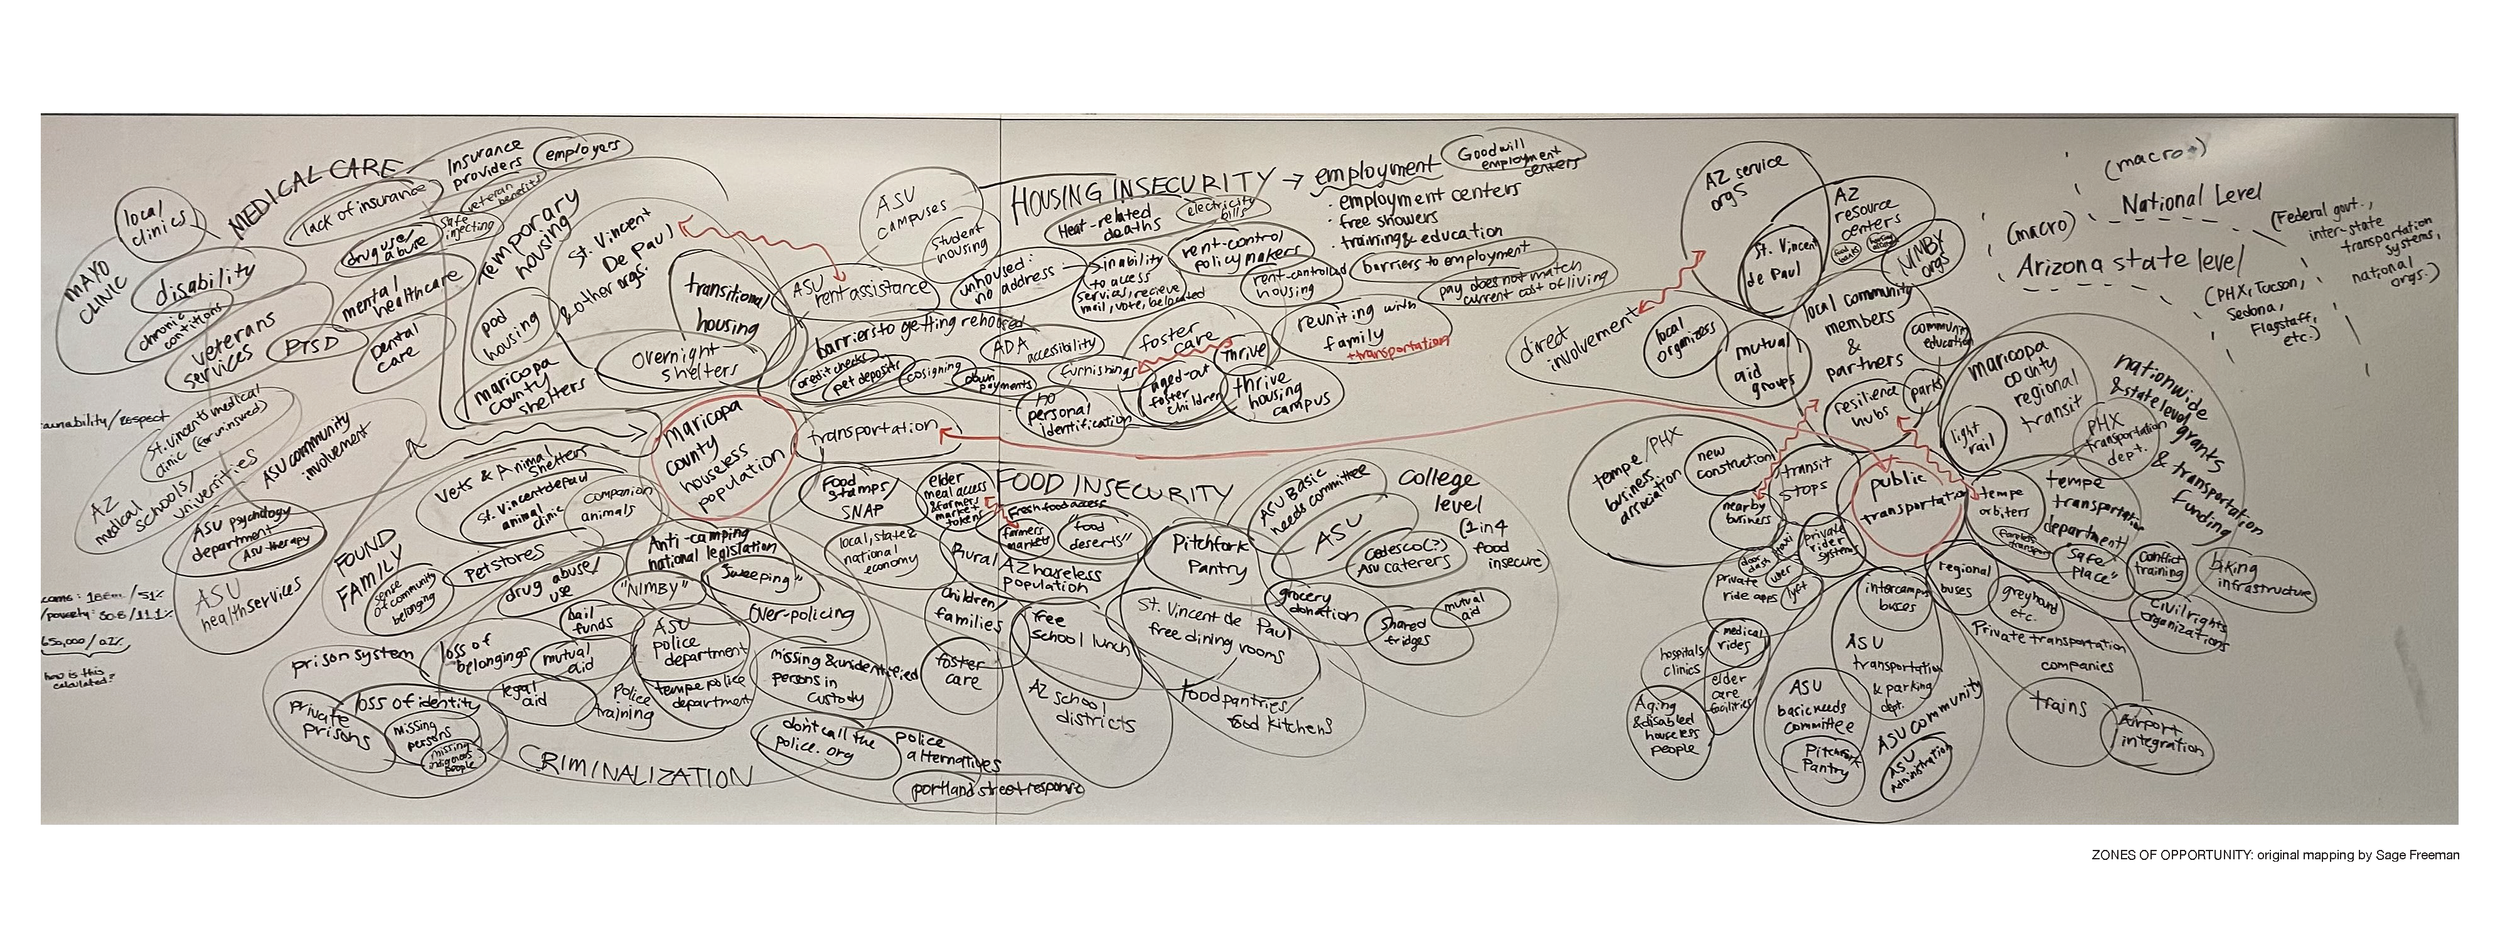 MEDICAL CARE
local
clinics
MAYO
CLINIC
lack of insurance
Insurance
providers
employers
veteran
benefits
Safe
injecting
drug use/
abuse
disability
chronic
conditions
mental
healthcare
veterans
services
PTSD
Dental
care
temporary
housing
St. Vincent
De Paul
& other orgs.
pod
housing
transitional
housing
overnight
shelters
maricopa
county
shelters
ASU
campuses
student
housing
ASU
rent assistance
HOUSING INSECURITY → employment
Goodwill
employment
centers
· employment centers
· free showers
· training & education
barriers to employment
pay does not match
current cost of living
Heat-related
deaths
electricity
bills
unhoused:
no address:
inability
to access
services, recieve
mail, vote, be located
rent-control
policy makers
rent-controlled
housing
barriers to getting rehoused
credit checks
pet deposits
cosigning
down
payments
ADA
accessibility
furnishings
foster
care
Thrive
aged-out
foster
children
thrive
housing
campus
reuniting with
family
+transportation
no
personal
identification
maricopa
county
houseless
population
transportation
/respect
St. Vincents medical
clinic (for uninsured)
AZ
medical
schools/
universities
ASU community
involvement
ASU psychology
department
ASU therapy
ASU
health services
Vets & Animal
Shelters
St. Vincent de Paul
animal
clinic
companion
animals
Pet stores
FOUND
FAMILY
sense
of community
belonging
/51%
/poverty: 30.8/11.1%
650,000/.02%
how is this
calculated?
Anti-camping
national legislation
"NIMBY"
"Sweeping"
Over-policing
drug abuse/
use
bail
funds
loss of
belongings
mutual
aid
legal
aid
prison system
private
prisons
loss of identity
missing
persons
missing
indigenous
people
ASU
police
department
tempe police
department
police
training
missing & unidentified
persons in
custody
CRIMINALIZATION
don't call the
police.org
police
alternatives
portland street response
FOOD INSECURITY
Food
Stamps/
SNAP
elder
meal access
& farmers
market
tokens
Fresh food access
farmers
markets
"food
deserts"
local, state &
national
economy
Rural
AZ houseless
population
Children/
families
foster
care
free
school lunch
AZ school
districts
Pitchfork
Pantry
St. Vincent de Paul
free dining rooms
food pantries/
food kitchens
ASU Basic
needs committee
ASU
Cedesco(?)
ASU caterers
grocery
donation
Shared
fridges
mutual
aid
College
level
(1 in 4
food
insecure)
direct
involvement
AZ service
orgs
St. Vincent
de Paul
AZ
resource
centers
food
banks
YIMBY
orgs
local
organizers
mutual
aid
groups
local community
members
&
partners
community
education
resilience
hubs
parks
(macro+)
National Level
(Federal govt.,
inter-state
transportation
systems,
national
orgs.)
(macro)
Arizona state level
(PHX, Tucson,
Sedona,
Flagstaff,
etc.)
maricopa
county
regional
transit
light
rail
PHX
transportation
dept.
nationwide
& state level
grants
& transportation
funding
tempe/PHX
business
association
new
construction
nearby
business
transit
stops
public
transportation
tempe
orbiters
tempe
transportation
department
"Safe
Place"
Conflict
training
biking
infrastructure
Civil rights
organizations
private
rider
systems
taxi
door
dash
uber
lyft
private
ride apps
medical
rides
hospitals
clinics
elder
care
facilities
Aging
& disabled
houseless
people
intercampus
buses
ASU
transportation
& parking
dept.
ASU
basic needs
committee
Pitchfork
Pantry
ASU community
ASU
administration
regional
buses
greyhound
etc.
Private transportation
companies
trains
Airport
integration
ZONES OF OPPORTUNITY: original mapping by Sage Freeman